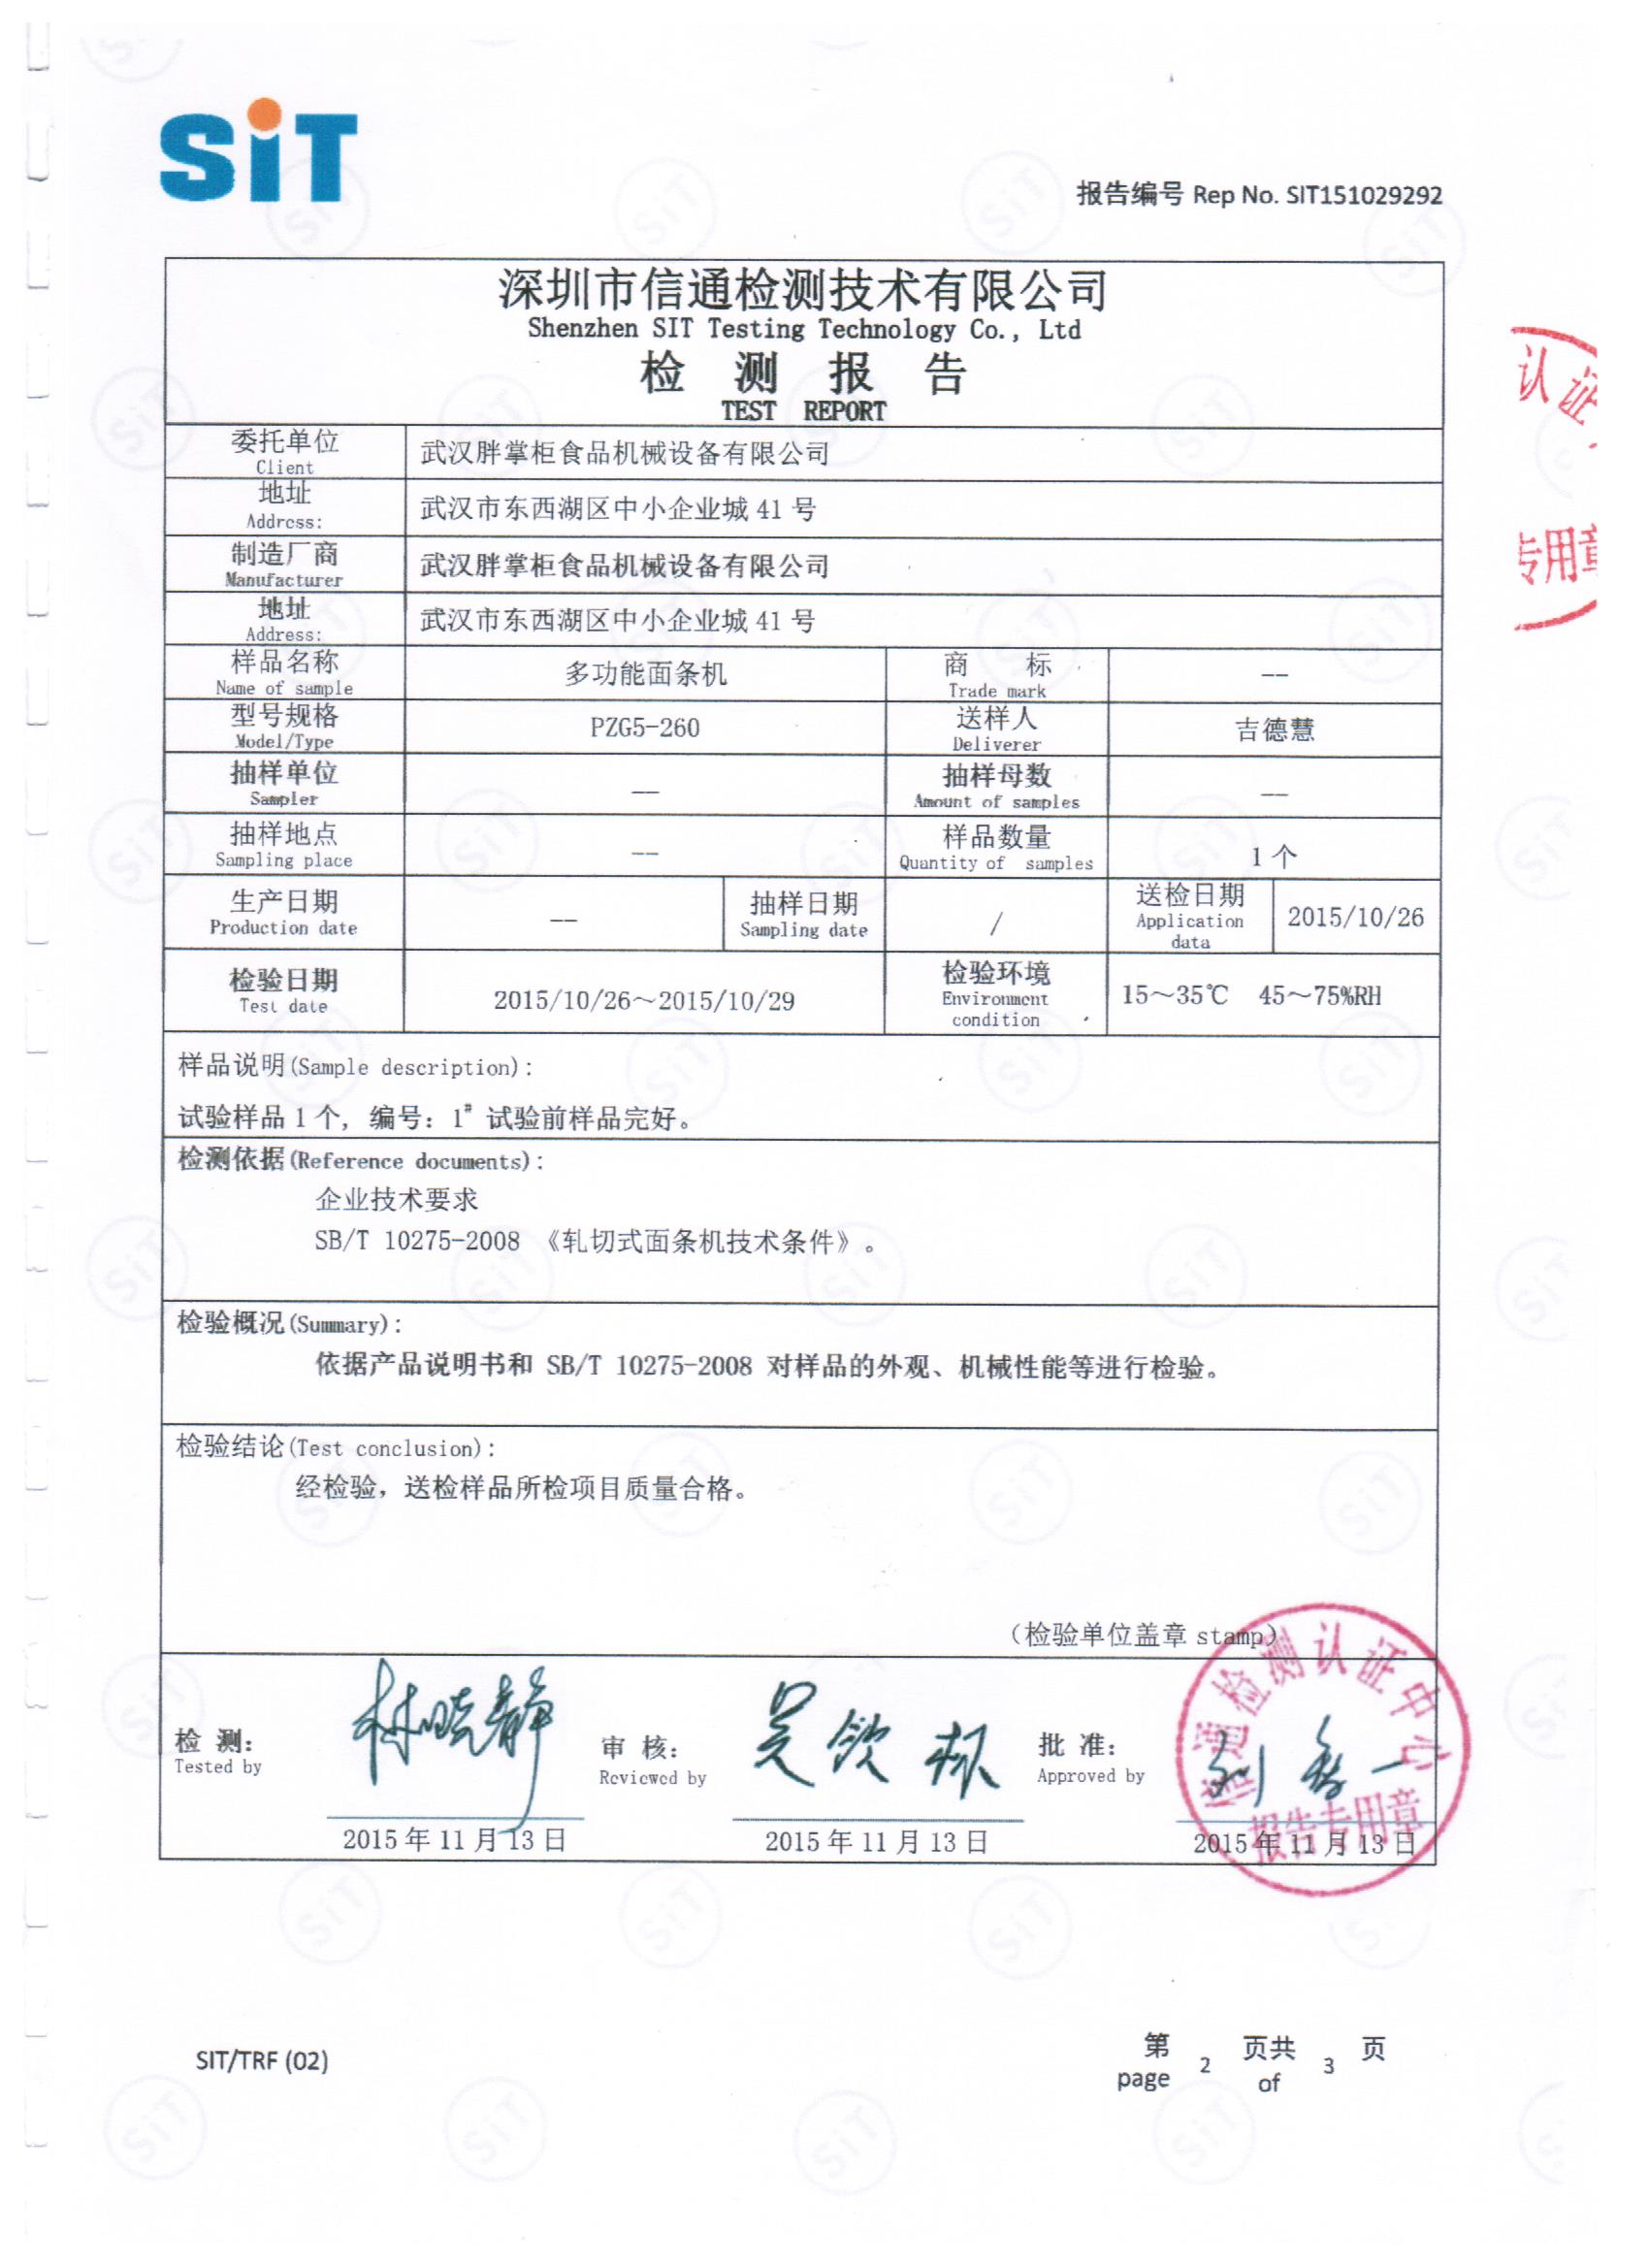 SiT
报告编号 Rep No. SIT151029292
深圳市信通检测技术有限公司
Shenzhen SIT Testing Technology Co., Ltd
检 测 报 告
TEST REPORT
委托单位 武汉胖掌柜食品机械设备有限公司
Client
地址 武汉市东西湖区中小企业城 41 号
Address:
制造厂商 武汉胖掌柜食品机械设备有限公司
Manufacturer
地址 武汉市东西湖区中小企业城 41 号
Address:
样品名称 多功能面条机 商 标 ——
Name of sample Trade mark
型号规格 PZG5-260 送样人 吉德慧
Model/Type Deliverer
抽样单位 —— 抽样母数 ——
Sampler Amount of samples
抽样地点 —— 样品数量 1 个
Sampling place Quantity of samples
生产日期 —— 抽样日期 / 送检日期 2015/10/26
Production date Sampling date Application
data
检验日期 2015/10/26～2015/10/29 检验环境 15～35℃ 45～75%RH
Test date Environment
condition
样品说明(Sample description):
试验样品 1 个, 编号: 1# 试验前样品完好。
检测依据(Reference documents):
企业技术要求
SB/T 10275-2008 《轧切式面条机技术条件》。
检验概况(Summary):
依据产品说明书和 SB/T 10275-2008 对样品的外观、机械性能等进行检验。
检验结论(Test conclusion):
经检验，送检样品所检项目质量合格。
（检验单位盖章 stamp）
检 测: 林晓静 审 核: 吴钦 批 准:
Tested by Reviewed by Approved by
2015 年 11 月 13 日 2015 年 11 月 13 日 2015 年 11 月 13 日
信通检测认证中心
报告专用章
认证
专用章
SIT/TRF (02)
第 2 页共 3 页
page of